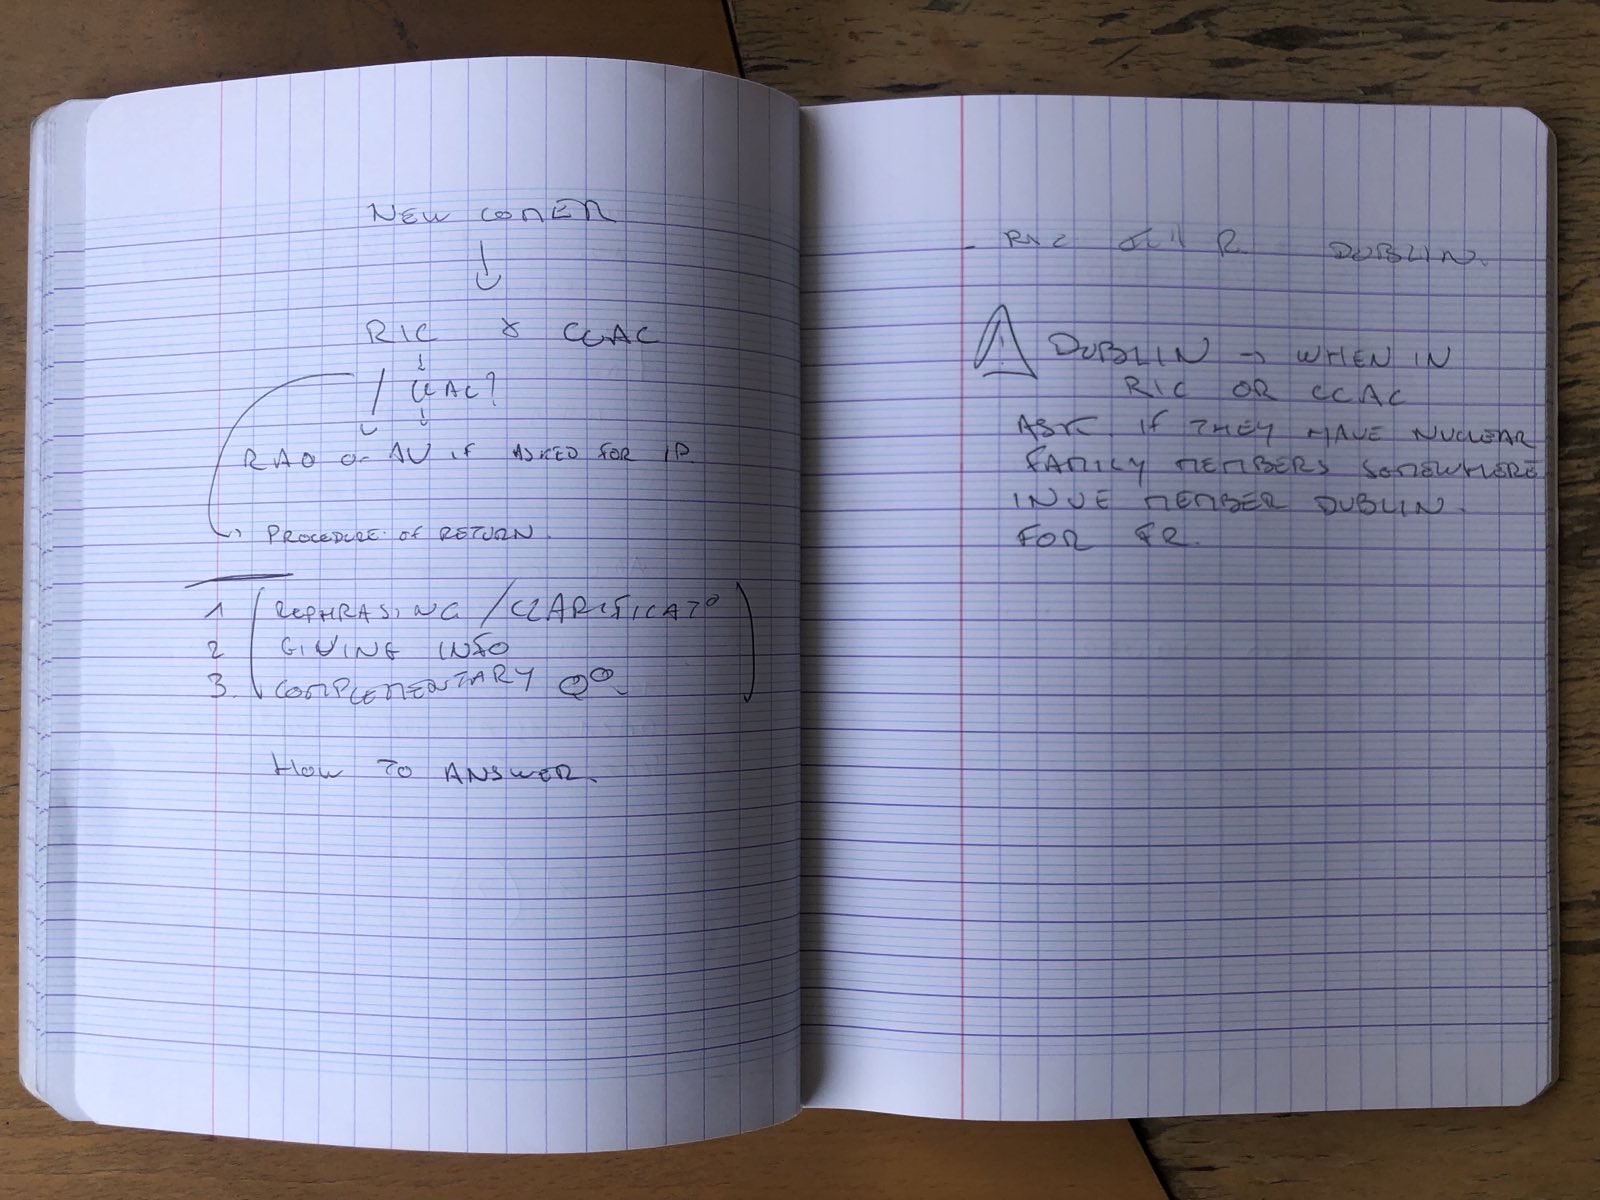 NEW COMER
RIC & CCAC
CCAC?
RAO or AU if ASKED FOR IP
PROCEDURE OF RETURN.
1 REPHRASING / CLARIFICAT°
2 GIVING INFO
3. COMPLEMENTARY QO
HOW TO ANSWER.
- RIC R DUBLIN.
! DUBLIN → WHEN IN
RIC OR CCAC
ASK IF THEY HAVE NUCLEAR
FAMILY MEMBERS SOMEWHERE
IN UE MEMBER DUBLIN.
FOR FR.